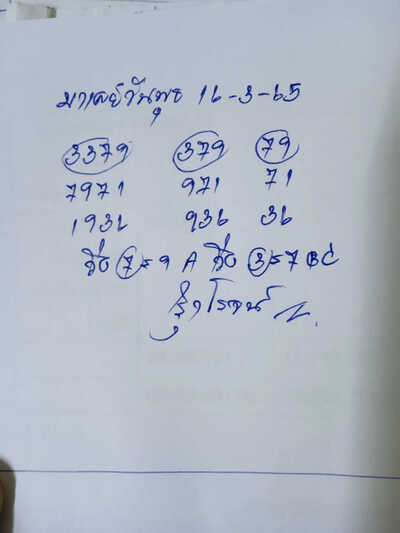 มาเลย์วันพุธ 16-3-65
3379 379 79
7971 971 71
1936 936 36
คือ 7=9 A คือ 3=7 BC